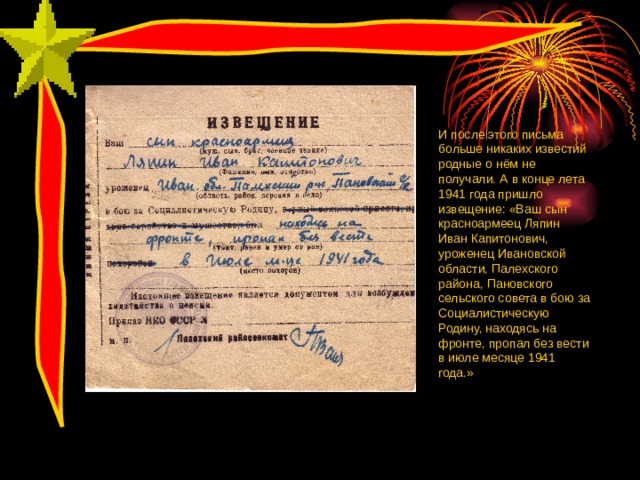 ИЗВЕЩЕНИЕ
Ваш сын красноармеец
(муж, сын, брат, воинское звание)
Ляпин Иван Капитонович
(Фамилия, имя, отчество)
уроженец Иван. обл. Палехский р-н Пановский с/с
(область, район, деревня и село)
в бою за Социалистическую Родину,
находясь на
фронте, пропал без вести
(убит, ранен и умер от ран)
похоронен в Июле м-це 1941 года
(место похорон)
Настоящее извещение является документом для возбужден
ходатайства о пенсии.
Приказ НКО СССР №
м. п. Палехский райвоенкомат
И после этого письма
больше никаких известий
родные о нём не
получали. А в конце лета
1941 года пришло
извещение: «Ваш сын
красноармеец Ляпин
Иван Капитонович,
уроженец Ивановской
области, Палехского
района, Пановского
сельского совета в бою за
Социалистическую
Родину, находясь на
фронте, пропал без вести
в июле месяце 1941
года.»